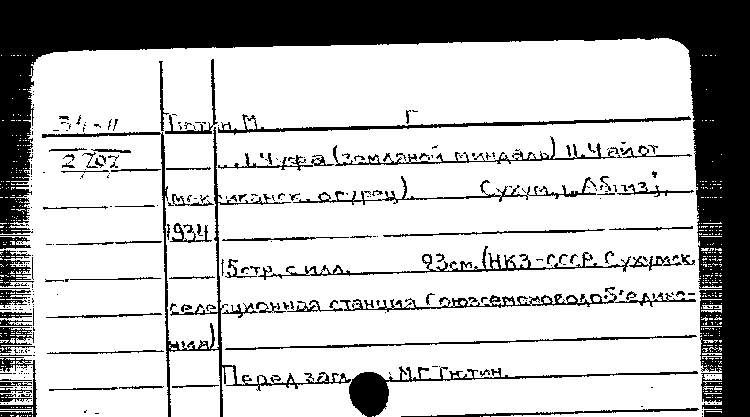 34-11 Тютин, М. Г
2707 ..I. Чуфа (земляной миндаль) II. Чайот
(мексиканск. огурец). Сухум, "Абгиз",
1934
15стр. с илл. 23см. (НКЗ-СССР. Сухумск.
селекционная станция Союзсеменоводоб'едине-
ния)
Перед загл : М.Г. Тютин.